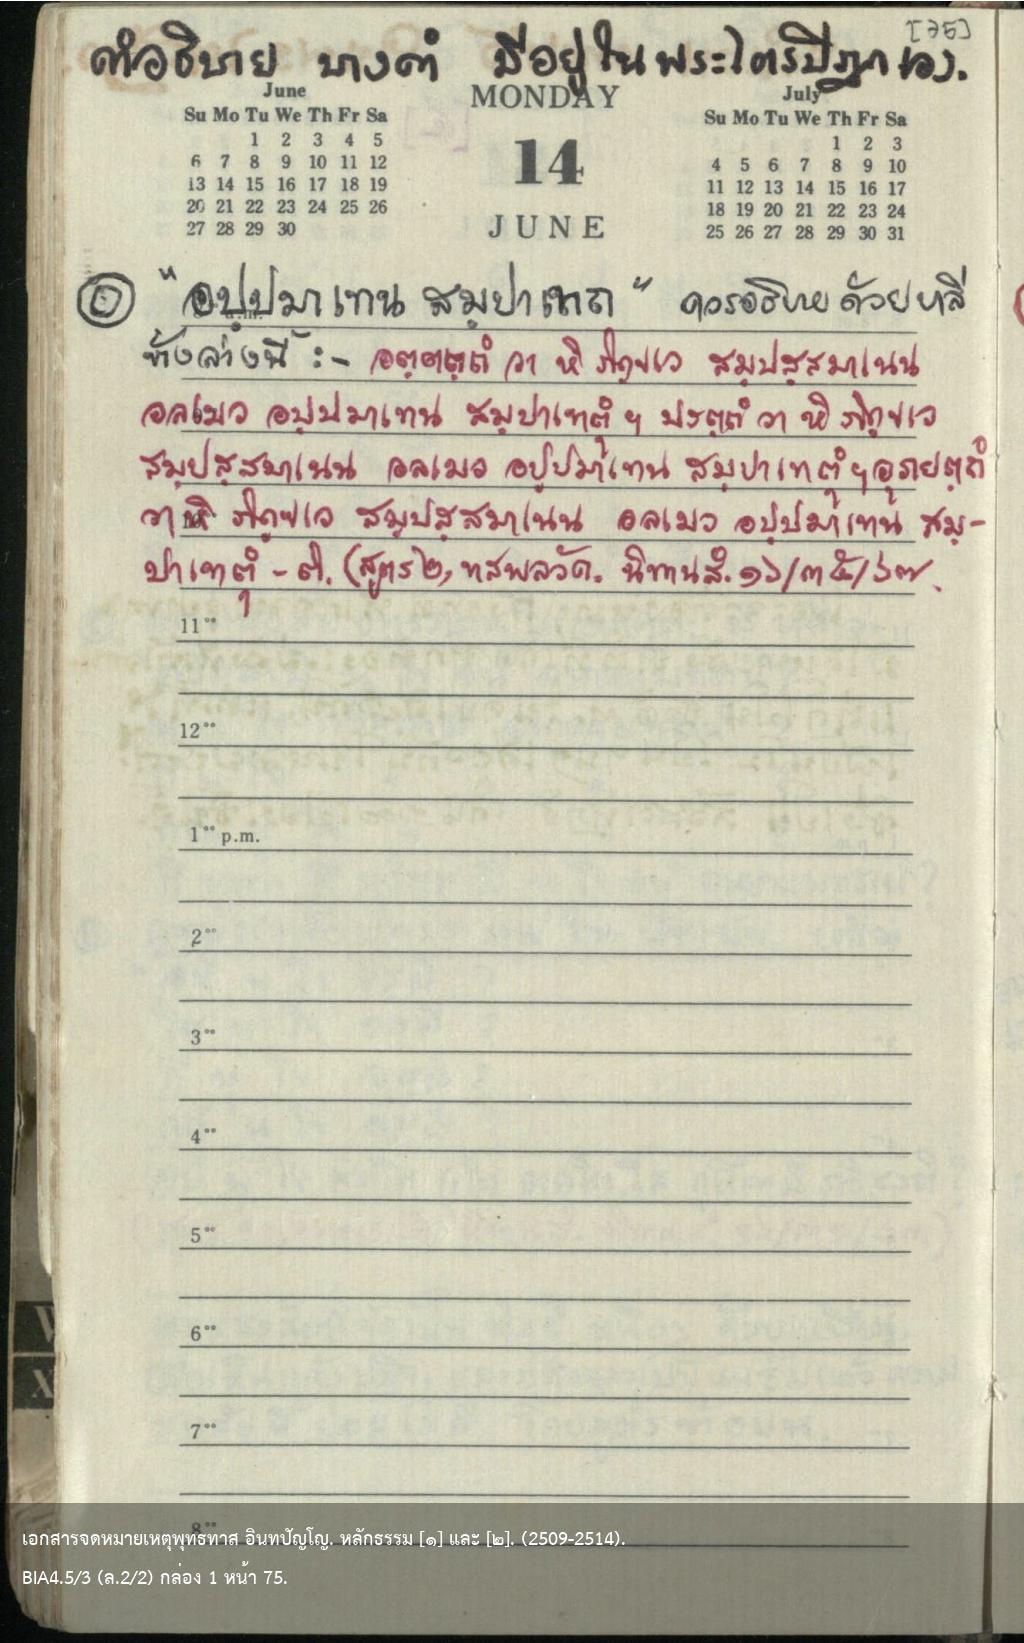 [75]
คำอธิบาย บางคำ มีอยู่ในพระไตรปิฎกเอง.
June
Su Mo Tu We Th Fr Sa
1 2 3 4 5
6 7 8 9 10 11 12
13 14 15 16 17 18 19
20 21 22 23 24 25 26
27 28 29 30
MONDAY
14
JUNE
July
Su Mo Tu We Th Fr Sa
1 2 3
4 5 6 7 8 9 10
11 12 13 14 15 16 17
18 19 20 21 22 23 24
25 26 27 28 29 30 31
"อปฺปมาเทน สมฺปาเทถ" ควรอธิบายด้วยบาลี
ข้างล่างนี้ :- อตฺตตฺถํ วา หิ ภิกฺขเว สมฺปสฺสมาเนน
อลเมว อปฺปมาเทน สมฺปาเทตุํ ฯ ปรตฺถํ วา หิ ภิกฺขเว
สมฺปสฺสมาเนน อลเมว อปฺปมาเทน สมฺปาเทตุํ ฯ อุภยตฺถํ
วา หิ ภิกฺขเว สมฺปสฺสมาเนน อลเมว อปฺปมาเทน สมฺ-
ปาเทตุํ - ติ. (สูตร ๒, ทสพลวัค. นิทานสํ. ๑๖/๓๕/๖๗.
11°°
12°°
1°° p.m.
2°°
3°°
4°°
5°°
6°°
7°°
8°°
W
X
เอกสารจดหมายเหตุพุทธทาส อินทปัญโญ. หลักธรรม [๑] และ [๒]. (2509-2514).
BIA4.5/3 (ล.2/2) กล่อง 1 หน้า 75.